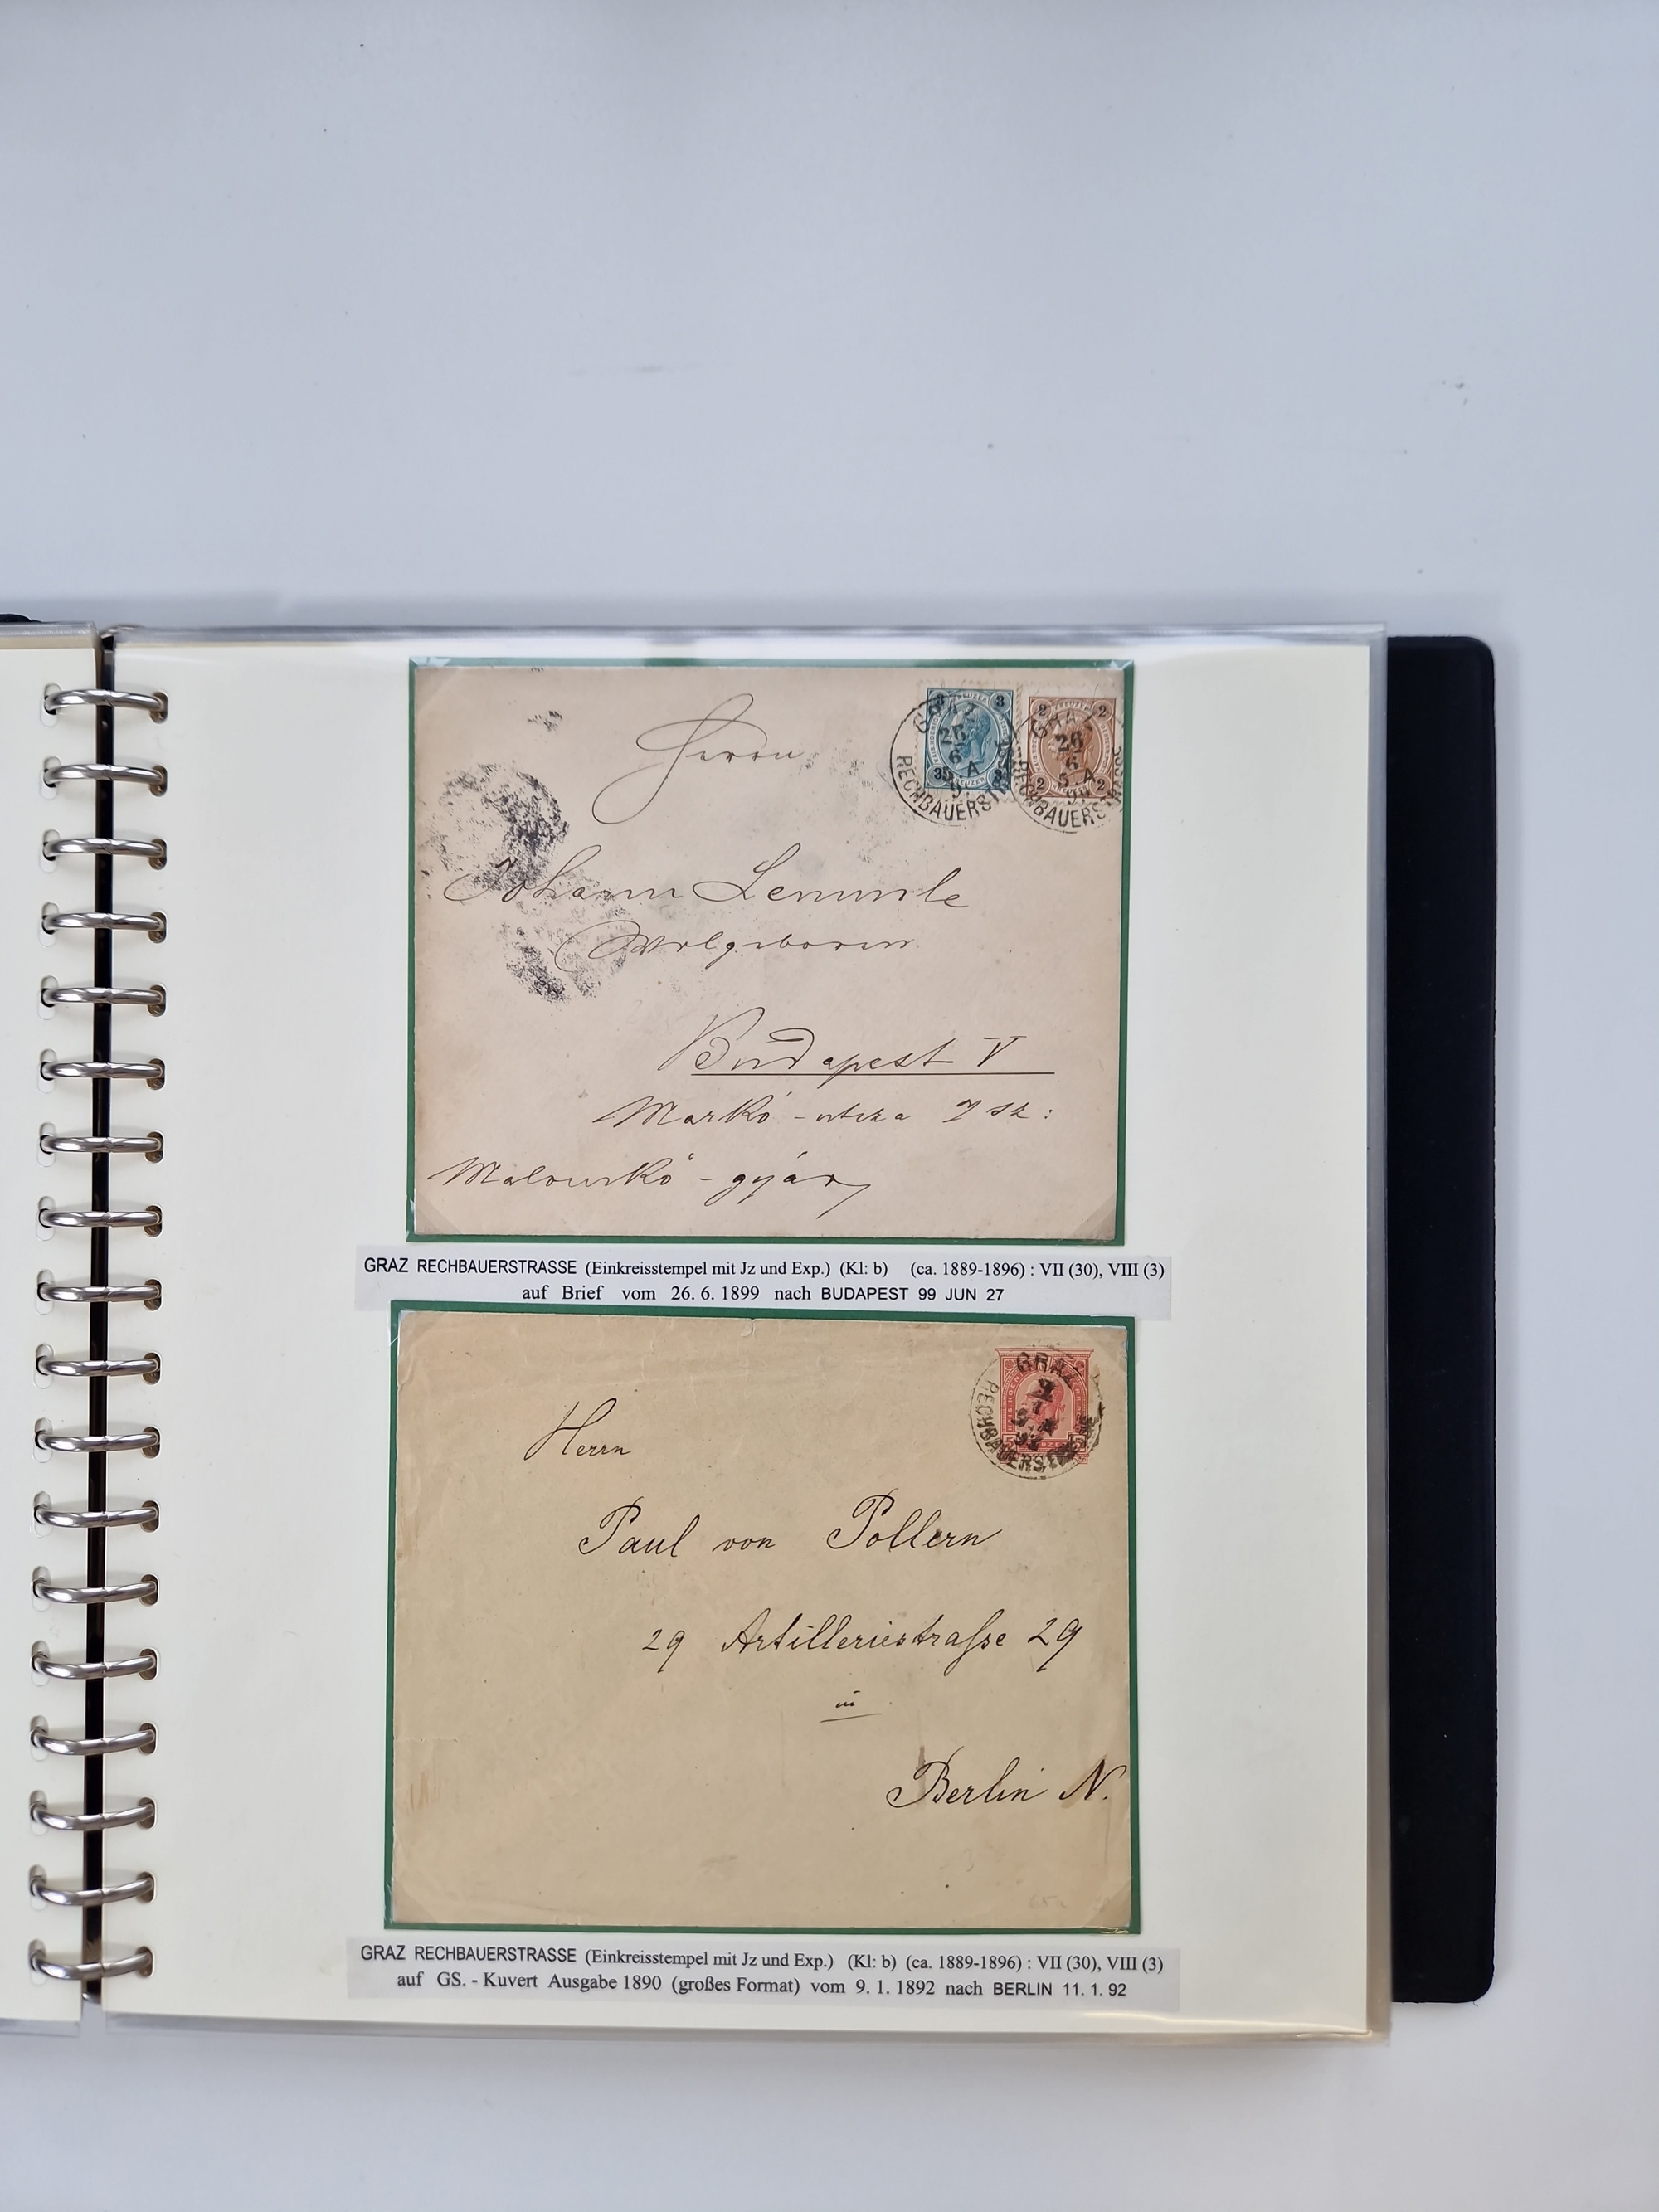 Herrn
Johann Lemmle
Wolgeboren
Budapest V
Markó-utcza 7 sz:
gyár
GRAZ
26
6
5. A
RECHBAUERSTRASSE
GRAZ
26
6
5. A
99
RECHBAUERSTRASSE
3 3
3 3
2 2
2 2
GRAZ RECHBAUERSTRASSE (Einkreisstempel mit Jz und Exp.) (Kl: b) (ca. 1889-1896) : VII (30), VIII (3)
auf Brief vom 26. 6. 1899 nach BUDAPEST 99 JUN 27
GRAZ
1
92
RECHBAUERSTRASSE
Herrn
Paul von Pollern
29 Artilleriestraße 29
in
Berlin N.
GRAZ RECHBAUERSTRASSE (Einkreisstempel mit Jz und Exp.) (Kl: b) (ca. 1889-1896) : VII (30), VIII (3)
auf GS. - Kuvert Ausgabe 1890 (großes Format) vom 9. 1. 1892 nach BERLIN 11. 1. 92